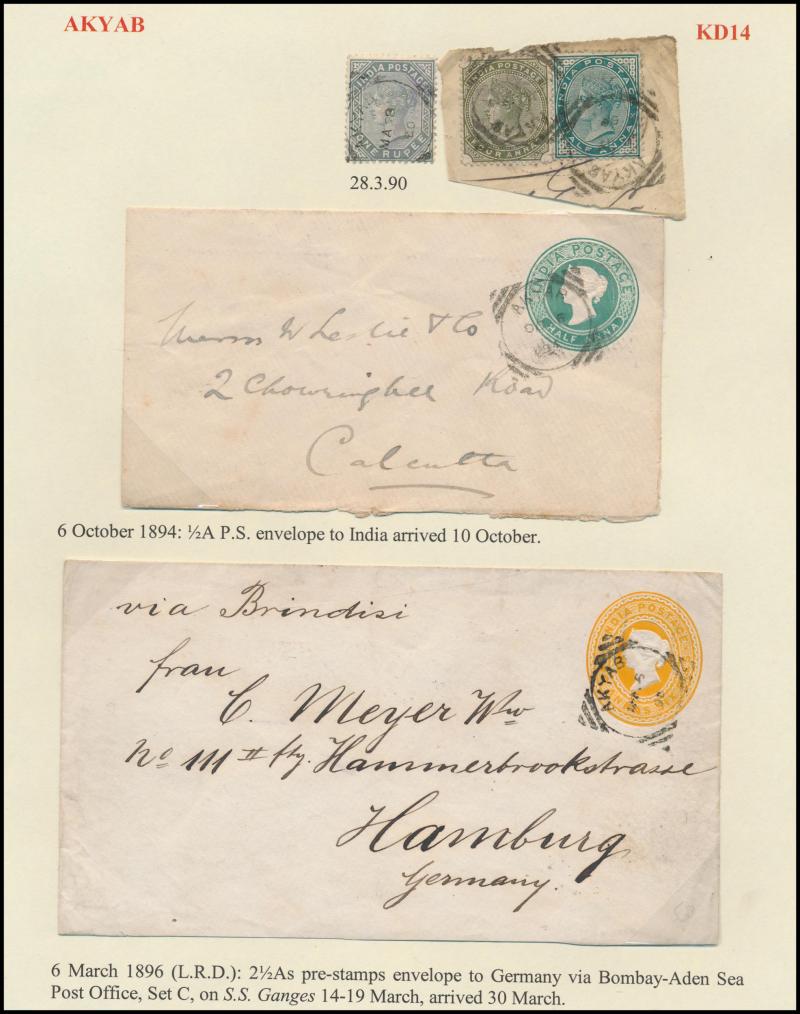 AKYAB
KD14
INDIA POSTAGE
ONE RUPEE
AKYAB
MA 28
90
INDIA POSTAGE
FOUR ANNAS
INDIA POSTAGE
HALF ANNA
AKYAB
28.3.90
INDIA POSTAGE
HALF ANNA
Messrs W Leslie & Co
2 Chowringhee Road
Calcutta
6 October 1894: ½A P.S. envelope to India arrived 10 October.
via Brindisi
INDIA POSTAGE
AKYAB
frau
C. Meyer Ww
No 111 II Etg. Hammerbrookstrasse
Hamburg
Germany.
6 March 1896 (L.R.D.): 2½As pre-stamps envelope to Germany via Bombay-Aden Sea
Post Office, Set C, on S.S. Ganges 14-19 March, arrived 30 March.